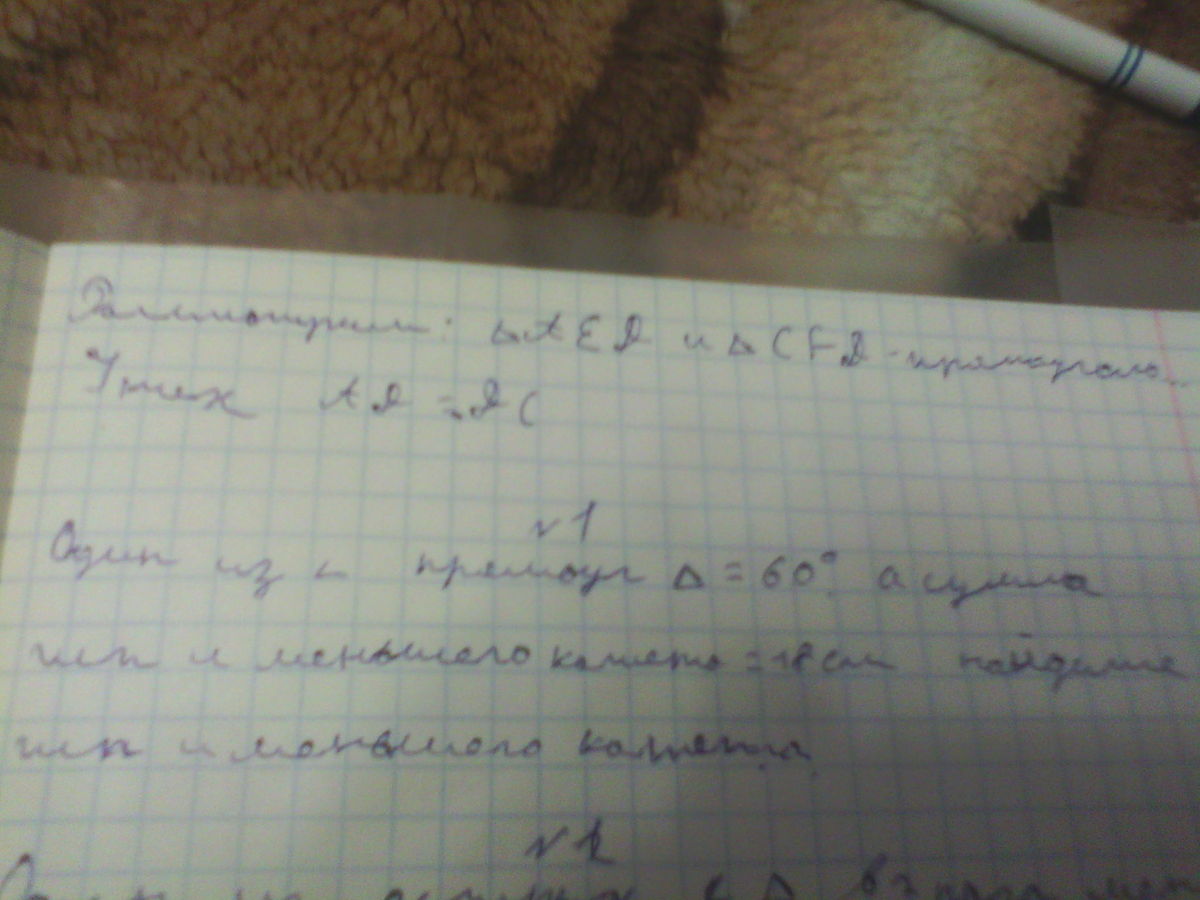 Рассмотрим: △AED и △CFD - прямоуголь
У них AD = DC
№1
Один из ∠ прямоуг △ = 60°, а сумма
гип и меньшего катета = 18 см найдите
гип и меньшего катета.
№2
Один из острых ∠ △